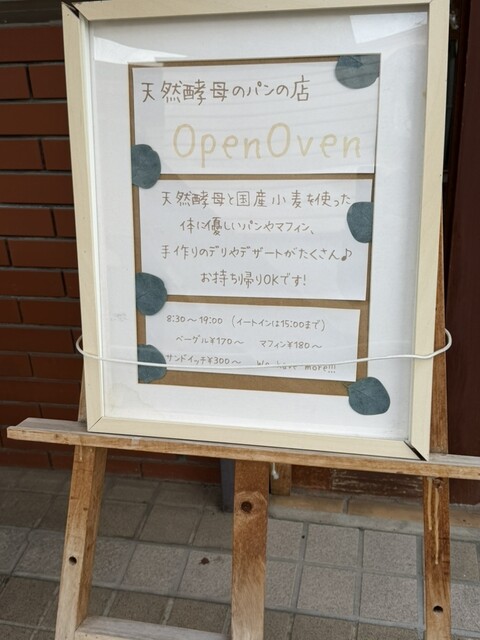 天然酵母のパンの店
OpenOven
天然酵母と国産小麦を使った
体に優しいパンやマフィン、
手作りのデリやデザートがたくさん♪
お持ち帰りOKです!
8:30～19:00 (イートインは15:00まで)
ベーグル¥170～ マフィン¥180～
サンドイッチ¥300～ We have more!!!